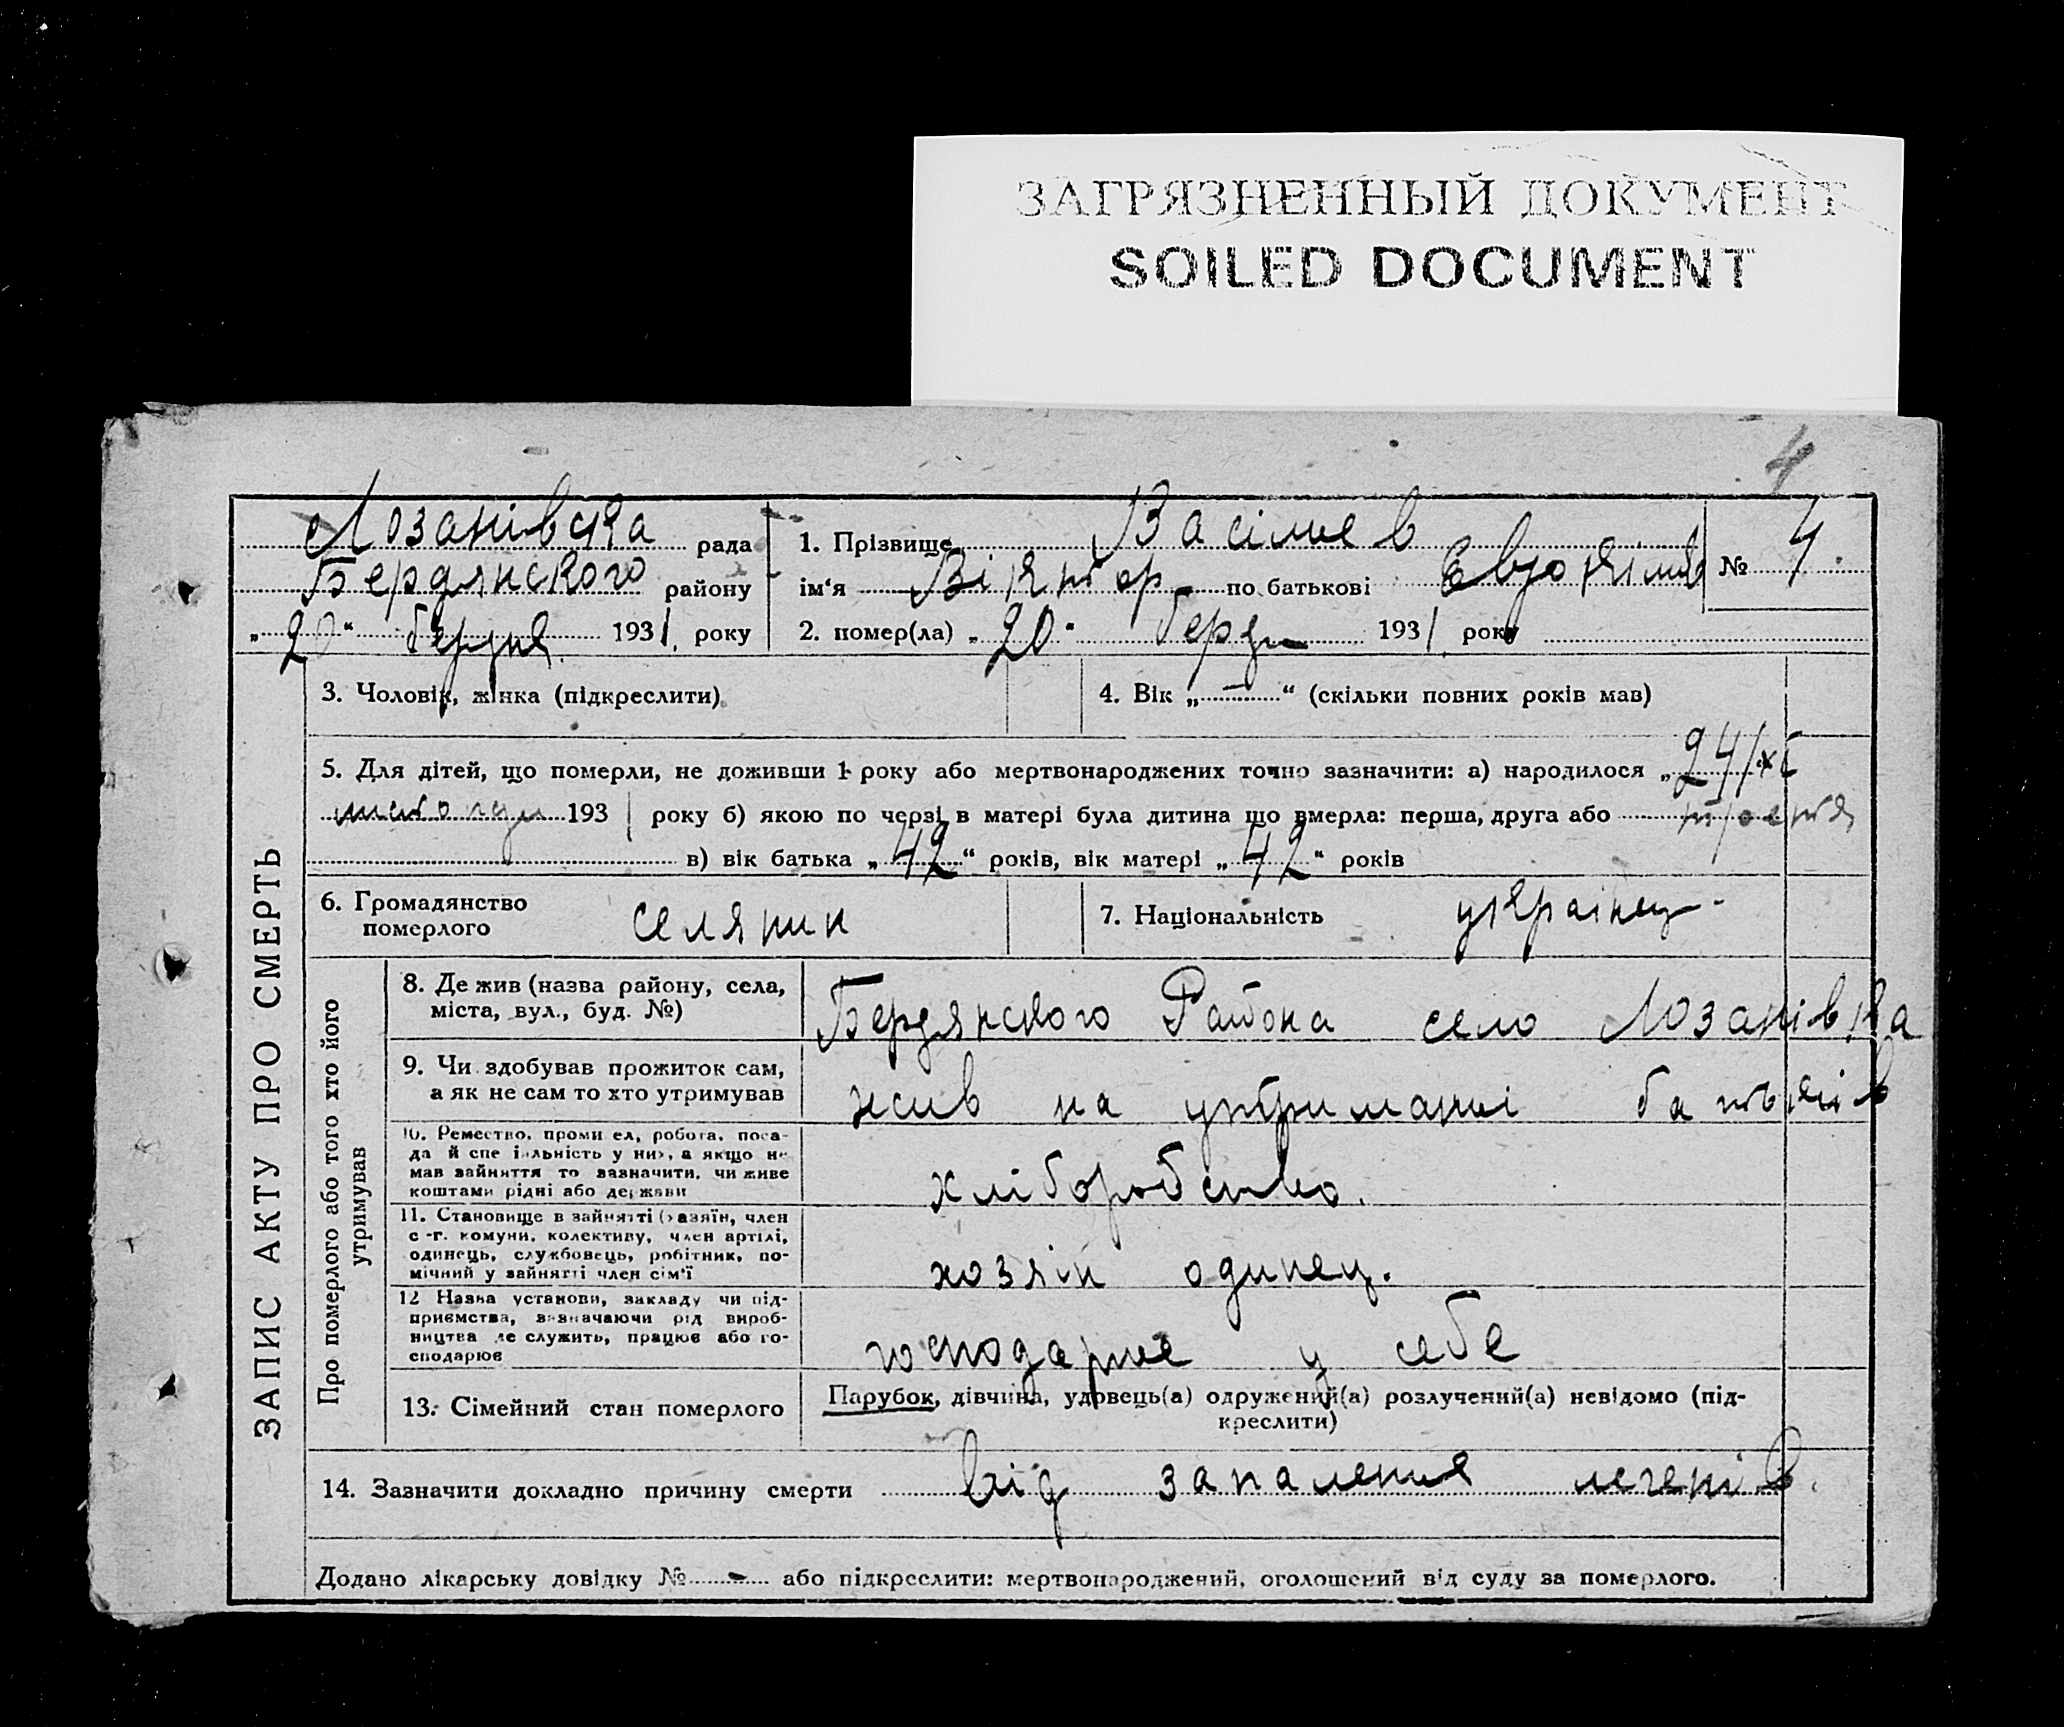 ЗАГРЯЗНЕННЫЙ ДОКУМЕНТ
SOILED DOCUMENT
4
Лозанівска рада
Бердянского району
„20“ берзня 1931. року
1. Прізвище Васілиев
ім‘я Віктор по батькові
№ 4.
2. помер(ла) „20“ берзн 1931. року
ЗАПИС АКТУ ПРО СМЕРТЬ
3. Чоловік, жінка (підкреслити)
4. Вік „—“ (скільки повних років мав)
5. Для дітей, що померли, не доживши 1 року або мертвонароджених точно зазначити: а) народилося „24/
1931 року б) якою по черзі в матері була дитина що вмерла: перша, друга або
в) вік батька „42“ років, вік матері „42“ років
6. Громадянство померлого селянин
7. Національність украінец.
Про померлого або того хто його утримував
8. Де жив (назва району, села,
міста, вул., буд. №)
Бердянского Района село Лозанівка
9. Чи здобував прожиток сам,
а як не сам то хто утримував
жив на утриманиі батьків
10. Ремество, промисел, робота, поса-
да й спеціяльність у них, а якщо не
мав зайняття то зазначити, чи живе
коштами рідні або держави
хліборобство.
11. Становище в зайнятті (хазяїн, член
с.-г. комуни, колективу, член артілі,
одинець, службовець, робітник, по-
мічний у зайнятті член сім‘ї
хозяін одинец.
12 Назва установи, закладу чи під-
приємства, зазначаючи рід вироб-
ництва де служить, працює або го-
сподарює
господарює у себе
13. Сімейний стан померлого
Парубок, дівчина, удовець(а) одружений(а) розлучений(а) невідомо (під-
креслити)
14. Зазначити докладно причину смерти від запалення легенів.
Додано лікарську довідку № - або підкреслити: мертвонароджений, оголошений від суду за померлого.